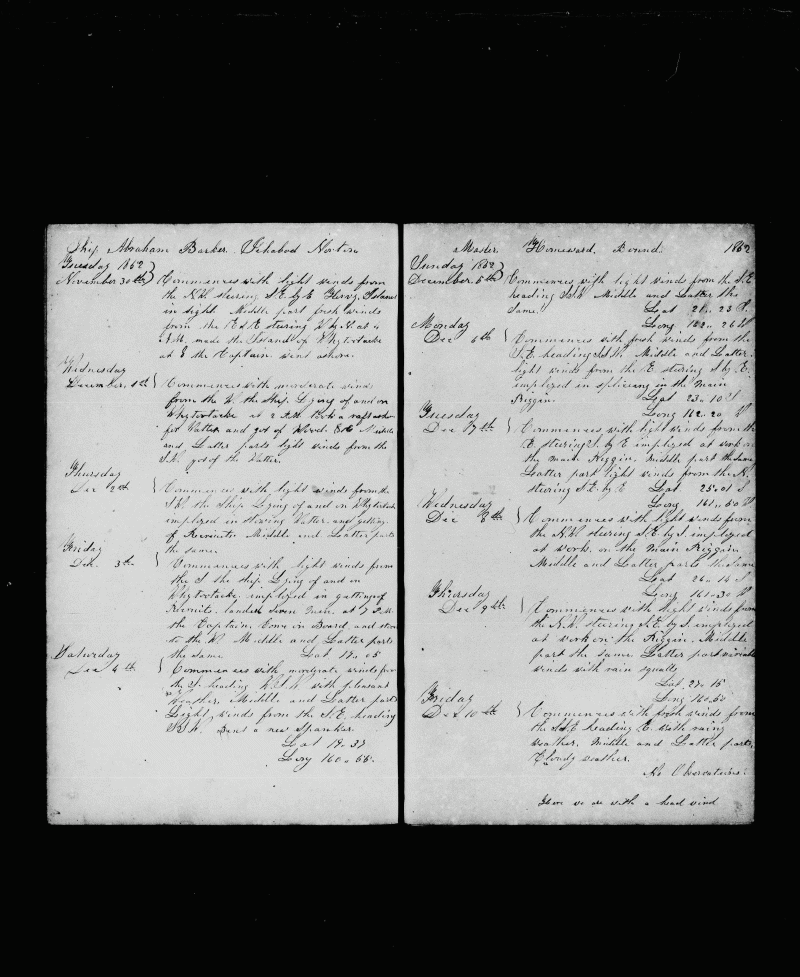 Ship Abraham Barker Ichabod Norton
Tuesday 1852
November 30th Commences with light winds from
the N.W. steering S.E. by E Islands
in sight Middle part fresh winds
from the steering at 4
A.M. made the Island of Whytootacke
at 8 the Captain went ashore.
Wednesday
December 1st Commences with moderate winds
from the W. the Ship Lying of and on
Whytootacke at 2 P.M. took a raft ashore
for Watter and got of Wood. Middle
and Latter parts light winds from the
S.W. got of the Watter.
Thursday
Dec 2th Commences with light winds from the
S.W. the Ship Lying of and on Whytootacke
employed in stowing Watter and getting
of Recruits Middle and Latter parts
the same.
Friday
Dec. 3th Commences with light winds from
the S the Ship Lying of and on
Whytootacke employed in getting of
Recruits landed Seven men. at 7 P.M.
the Captain Come on Board, and stood
to the W. Middle and Latter parts
the same. Lat 19.. 05
Saturday
Dec 4th Commences with modrate winds from
the S. heading W.S.W. with pleasant
weather, Middle and Latter parts
Light winds from the S.E. heading
S.S.W. Bent a new Spanker.
Lat 19.. 37
Long 160.. 55
Master. Homeward Bound. 1852
Sunday 1852
December 5th Commences with light winds from the S.E.
heading S.S.W. Middle and Latter the
same. Lat 21.. 23 S.
Long 162.. 26 W
Monday
Dec 6th Commences with fresh winds from the
S.E. heading S.S.W. Middle and Latter
light winds from the E. steering S by E.
employed in splicing in the Main
Riggin. Lat 23.. 10 S
Long 162.. 20 W
Tuesday
Dec 7th Commences with light winds from the
E. steering S. by E employed at work on
the Main Riggin. Middle part the same
Latter part light winds from the N.
steering S.E. by E Lat. 25.. 01 S
Long 161.. 50 W
Wednesday
Dec 8th Commences with light winds from
the N.W. steering S.E. by S. employed
at work on the Main Riggin
Middle and Latter parts the same
Lat 26.. 14 S
Long 161.. 30 W
Thursday
Dec 9th Commences with light winds from
the N.W. steering S.E. by S. employed
at work on the Riggin. Middle
part the same Latter part variable
winds with rain squalls
Lat 27.. 15
Long 160.. 50
Friday
Dec 10th Commences with fresh winds from
the S.S.E heading E. with rainy
weather, Middle and Latter parts
Cloudy weather.
No Observations.
Here we are with a head wind